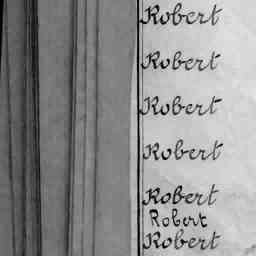 Robert
Robert
Robert
Robert
Robert
Robert
Robert